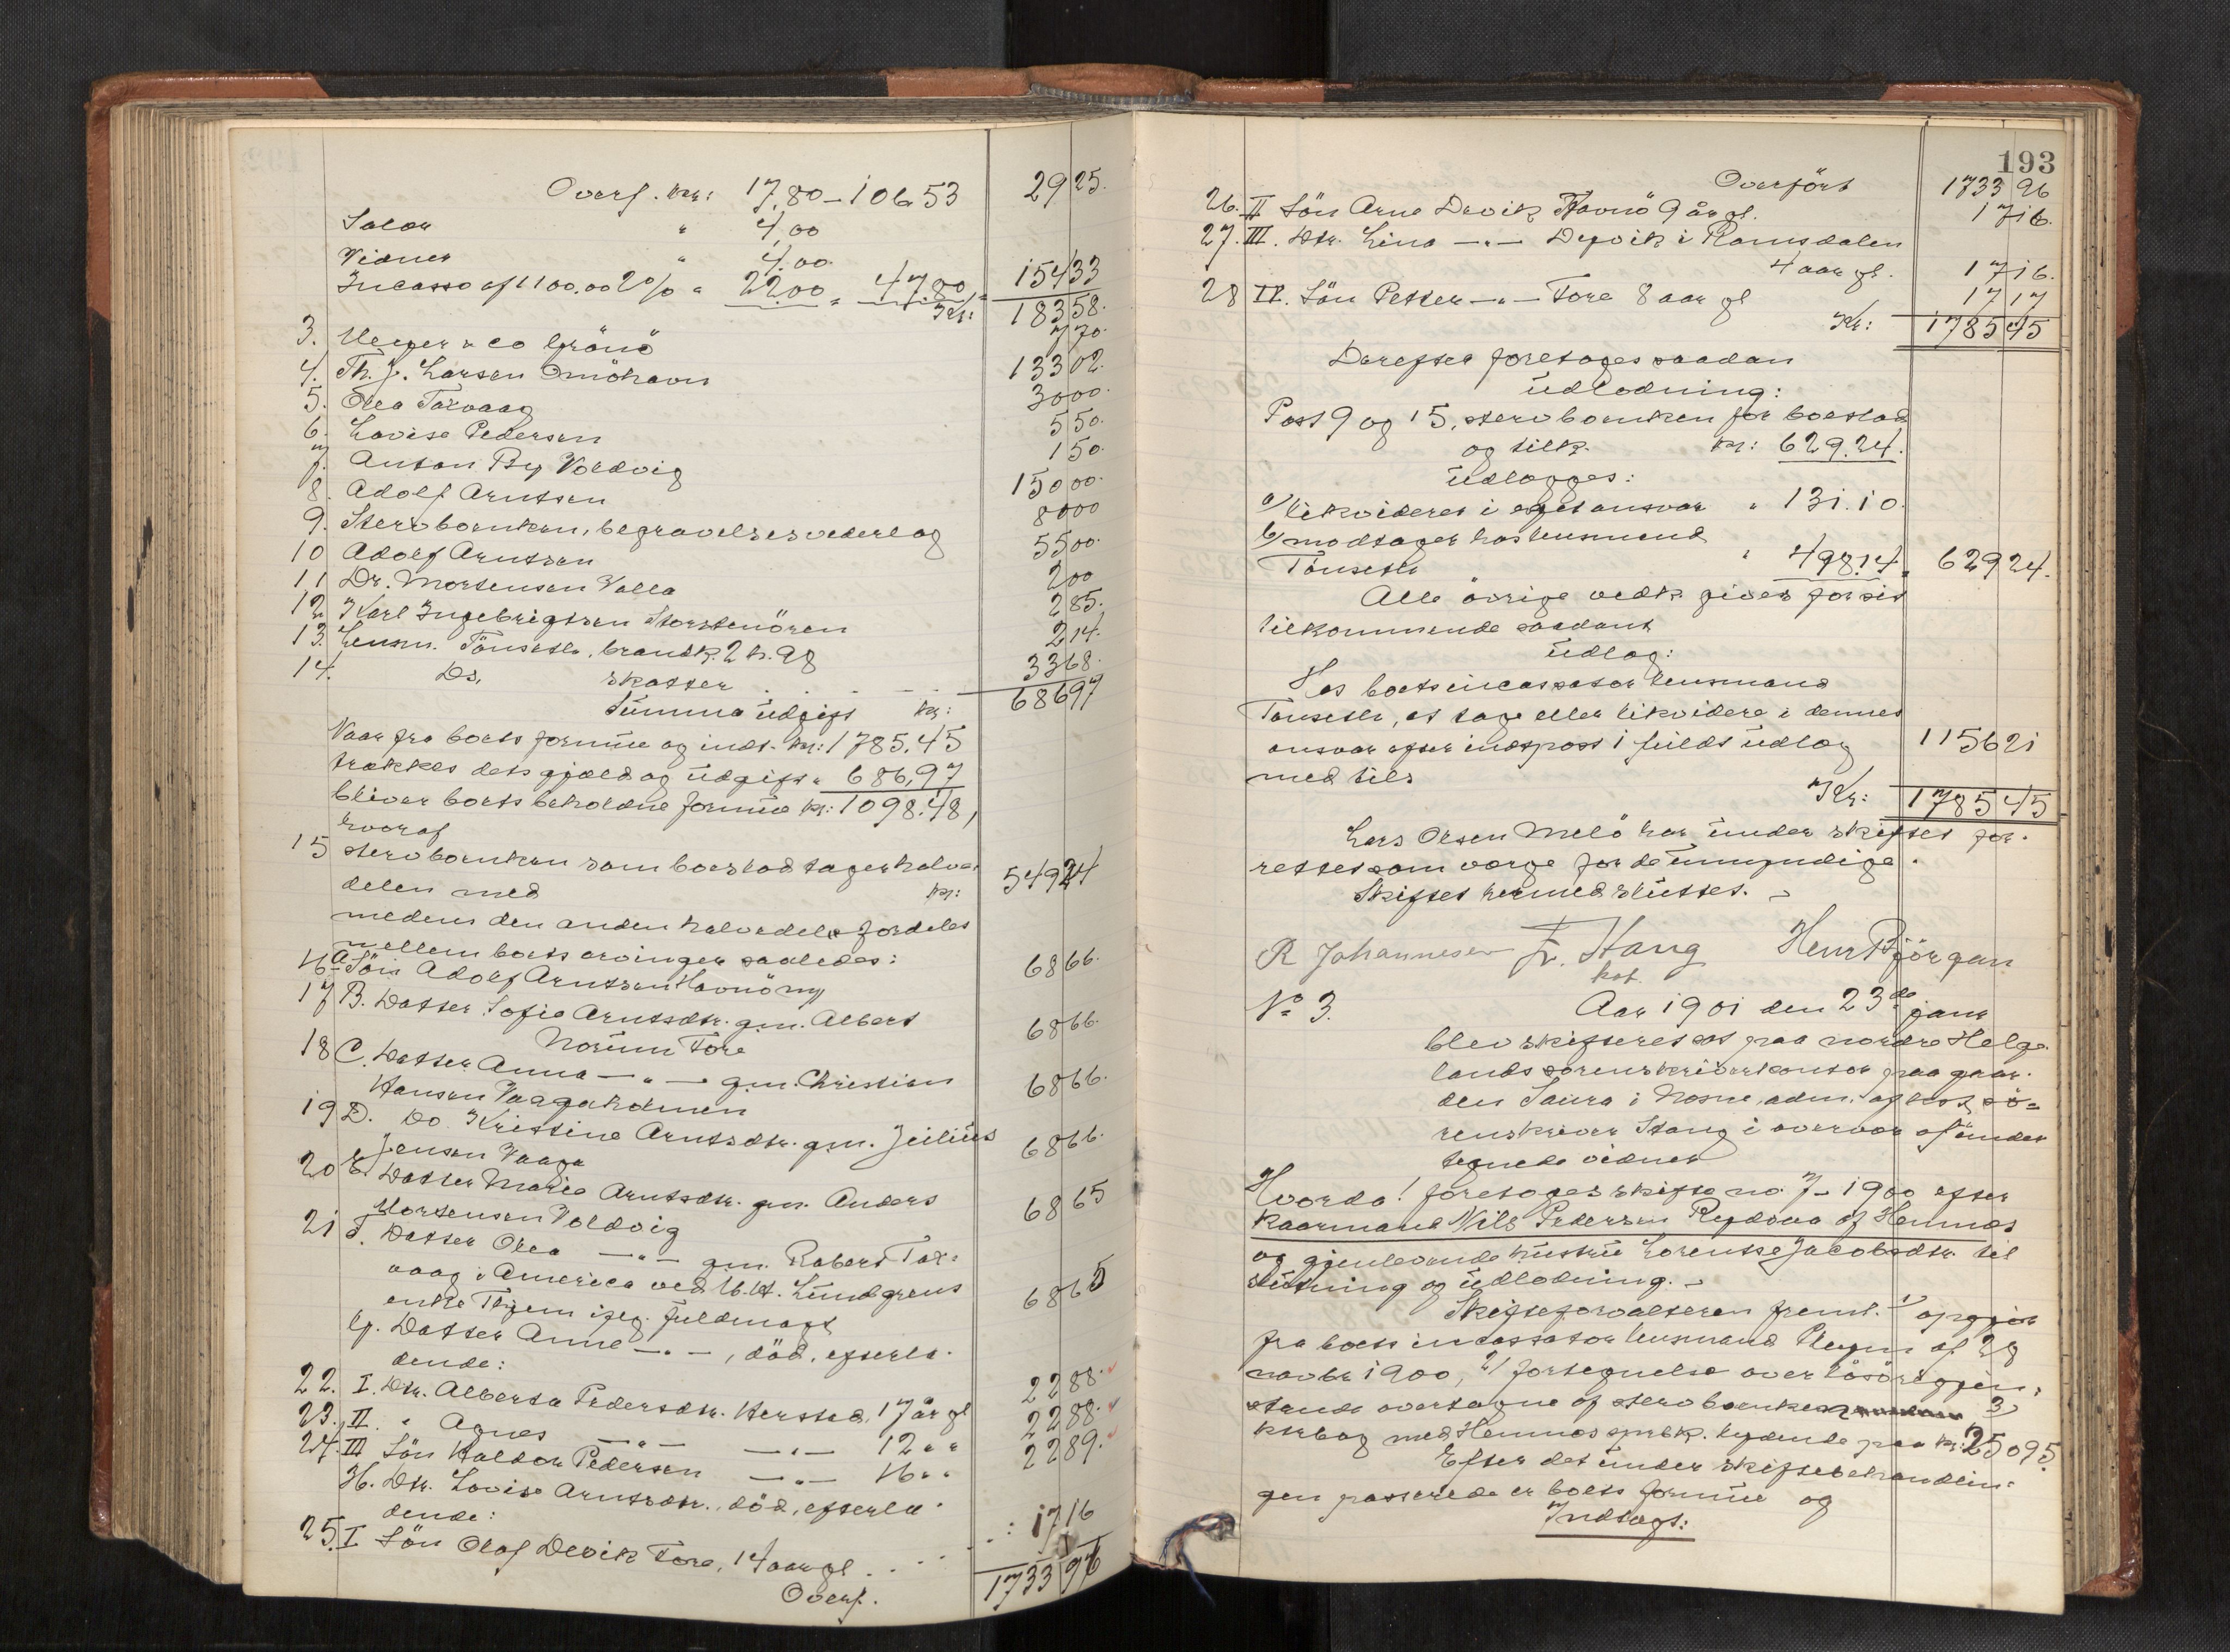 Overf. kr: 17.80 – 106.53 29 25.
Salær " 4,00
Vidner " 4.00
Incasso af 1100.00 2% " 22.00 " 47.80 " 154 33
Kr: 183 58.
3. Meyer & co Grönö 7 70.
4. Th. J. Larsen Omöhavn 133 02.
5. Olea Torvaag 30 00.
6. Lovise Pedersen 5 50.
7. Anton By Voldvig 1 50.
8. Adolf Arntsen 150 00.
9. Stervboenken, begravelsesvederlag 80 00
10 Adolf Arntsen 55 00.
11 Dr. Mortensen Valla 2 00
12 Karl Ingebrigtsen Storstenören 2 85.
13. Lensm. Tönseth, brandk. 2 h. 98 2 14.
14. Ds. skatter 33 68.
Summa udgift kr: 686 97
Naar fra boets formue og indt. kr: 1785.45
trækkes dets gjæld og udgift " 686,97
bliver boets beholdne formue kr: 1098.48,
hvoraf
15 stervboenken som boeslod tager halve
delen med kr: 549 24
medens den anden halvedel fordeles
mellem boets arvinger saaledes:
16 A. Sön Adolf Arntsen Havnö my 68 66.
17 B. Datter Sofie Arntsdtr. gm. Albert
Norum Tore 68 66.
18 C. Datter Anna — " — gm. Christian
Hansen Vaagaholmen 68 66.
19 D. Do Kristine Arntsdtr. gm. Julius
Jensen Vaaga 68 66.
20 E. Datter Marie Arntsdtr. gm. Anders
Mortensen Voldvig 68 65
21 F. Datter Olea — " — gm. Robert Tor-
vaag i America ved M. A. Lundgrens
enke Thjem ifølg. fuldmagt 68 65
G. Datter Anne — " — , död, efterla-
dende:
22. I. Dtr. Alberta Pedersdtr. Herstad, 17 år gl 22 88.
23. II " Agnes — " — — " — 12 " " 22 88.
24. III Sön Haldor Pedersen — " — 16 " " 22 89.
H. Dtr. Lovise Arntsdtr., död, efterla-
dende:
25. I Sön Olaf Devik Tore, 14 aar gl. . . . 17 16
Overf. 1733 96
193
Overfört 1733 96
26. II Sön Arne Devik Havnö 9 år gl. 17 16.
27. III. Dtr. Lina — " — Depvik i Ramsdalen
4 aar gl. 17 16.
28 IV. Sön Petter — " — Tore 8 aar gl 17 17
Kr: 1785 45
Derefter foretages saadan
udlodning:
Post 9 og 15, stervboenken for boeslod
og tilk. kr: 629.24.
udlægges:
a/ likvideres i eget ansvar " 131.10.
b/ modtager hos lensmand
Tönseth " 498.14 " 629 24.
Alle övrige vedk gives for sit
tilkommende saadant
udlæg:
Hos boets incassator lensmand
Tönseth, at tage eller likvidere i dennes
ansvar efter indtpost 1 fuldt udlæg 1156 21
med tils
Kr: 1785 45
Lars Olsen Melö har under skiftet for-
rettet som værge for de umyndige.
Skiftet hermed sluttet. –
R Johannesen Fr. Stang Henr Björgan
kst.
No 3. Aar 1901 den 23de janr
blev skifteret sat paa nordre Helge-
lands sorenskriverkontor paa gaar-
den Saura i Nesne, adm. af kst so-
renskriver Stang i overvær af under
tegnede vidner
Hvorda! foretoges skifte no. 7 – 1900 efter
kaarmand Nils Pedersen Rydsaa af Hemnes
og gjenlevende hustru Lorentse Jacobsdtr. til
slutning og udlodning. –
Skifteforvalteren freml. 1/ opgjör
fra boets incassator lensmand Meyer af 28
novbr 1900, 2/ fortegnelse over lösöregjen-
stande overtagne af stervboenken 3/
ksrbog med Hemnes sprbk. lydende paa kr: 250 95.
Efter det under skiftebehandlin-
gen passerede er boets formue og
Indtægt: